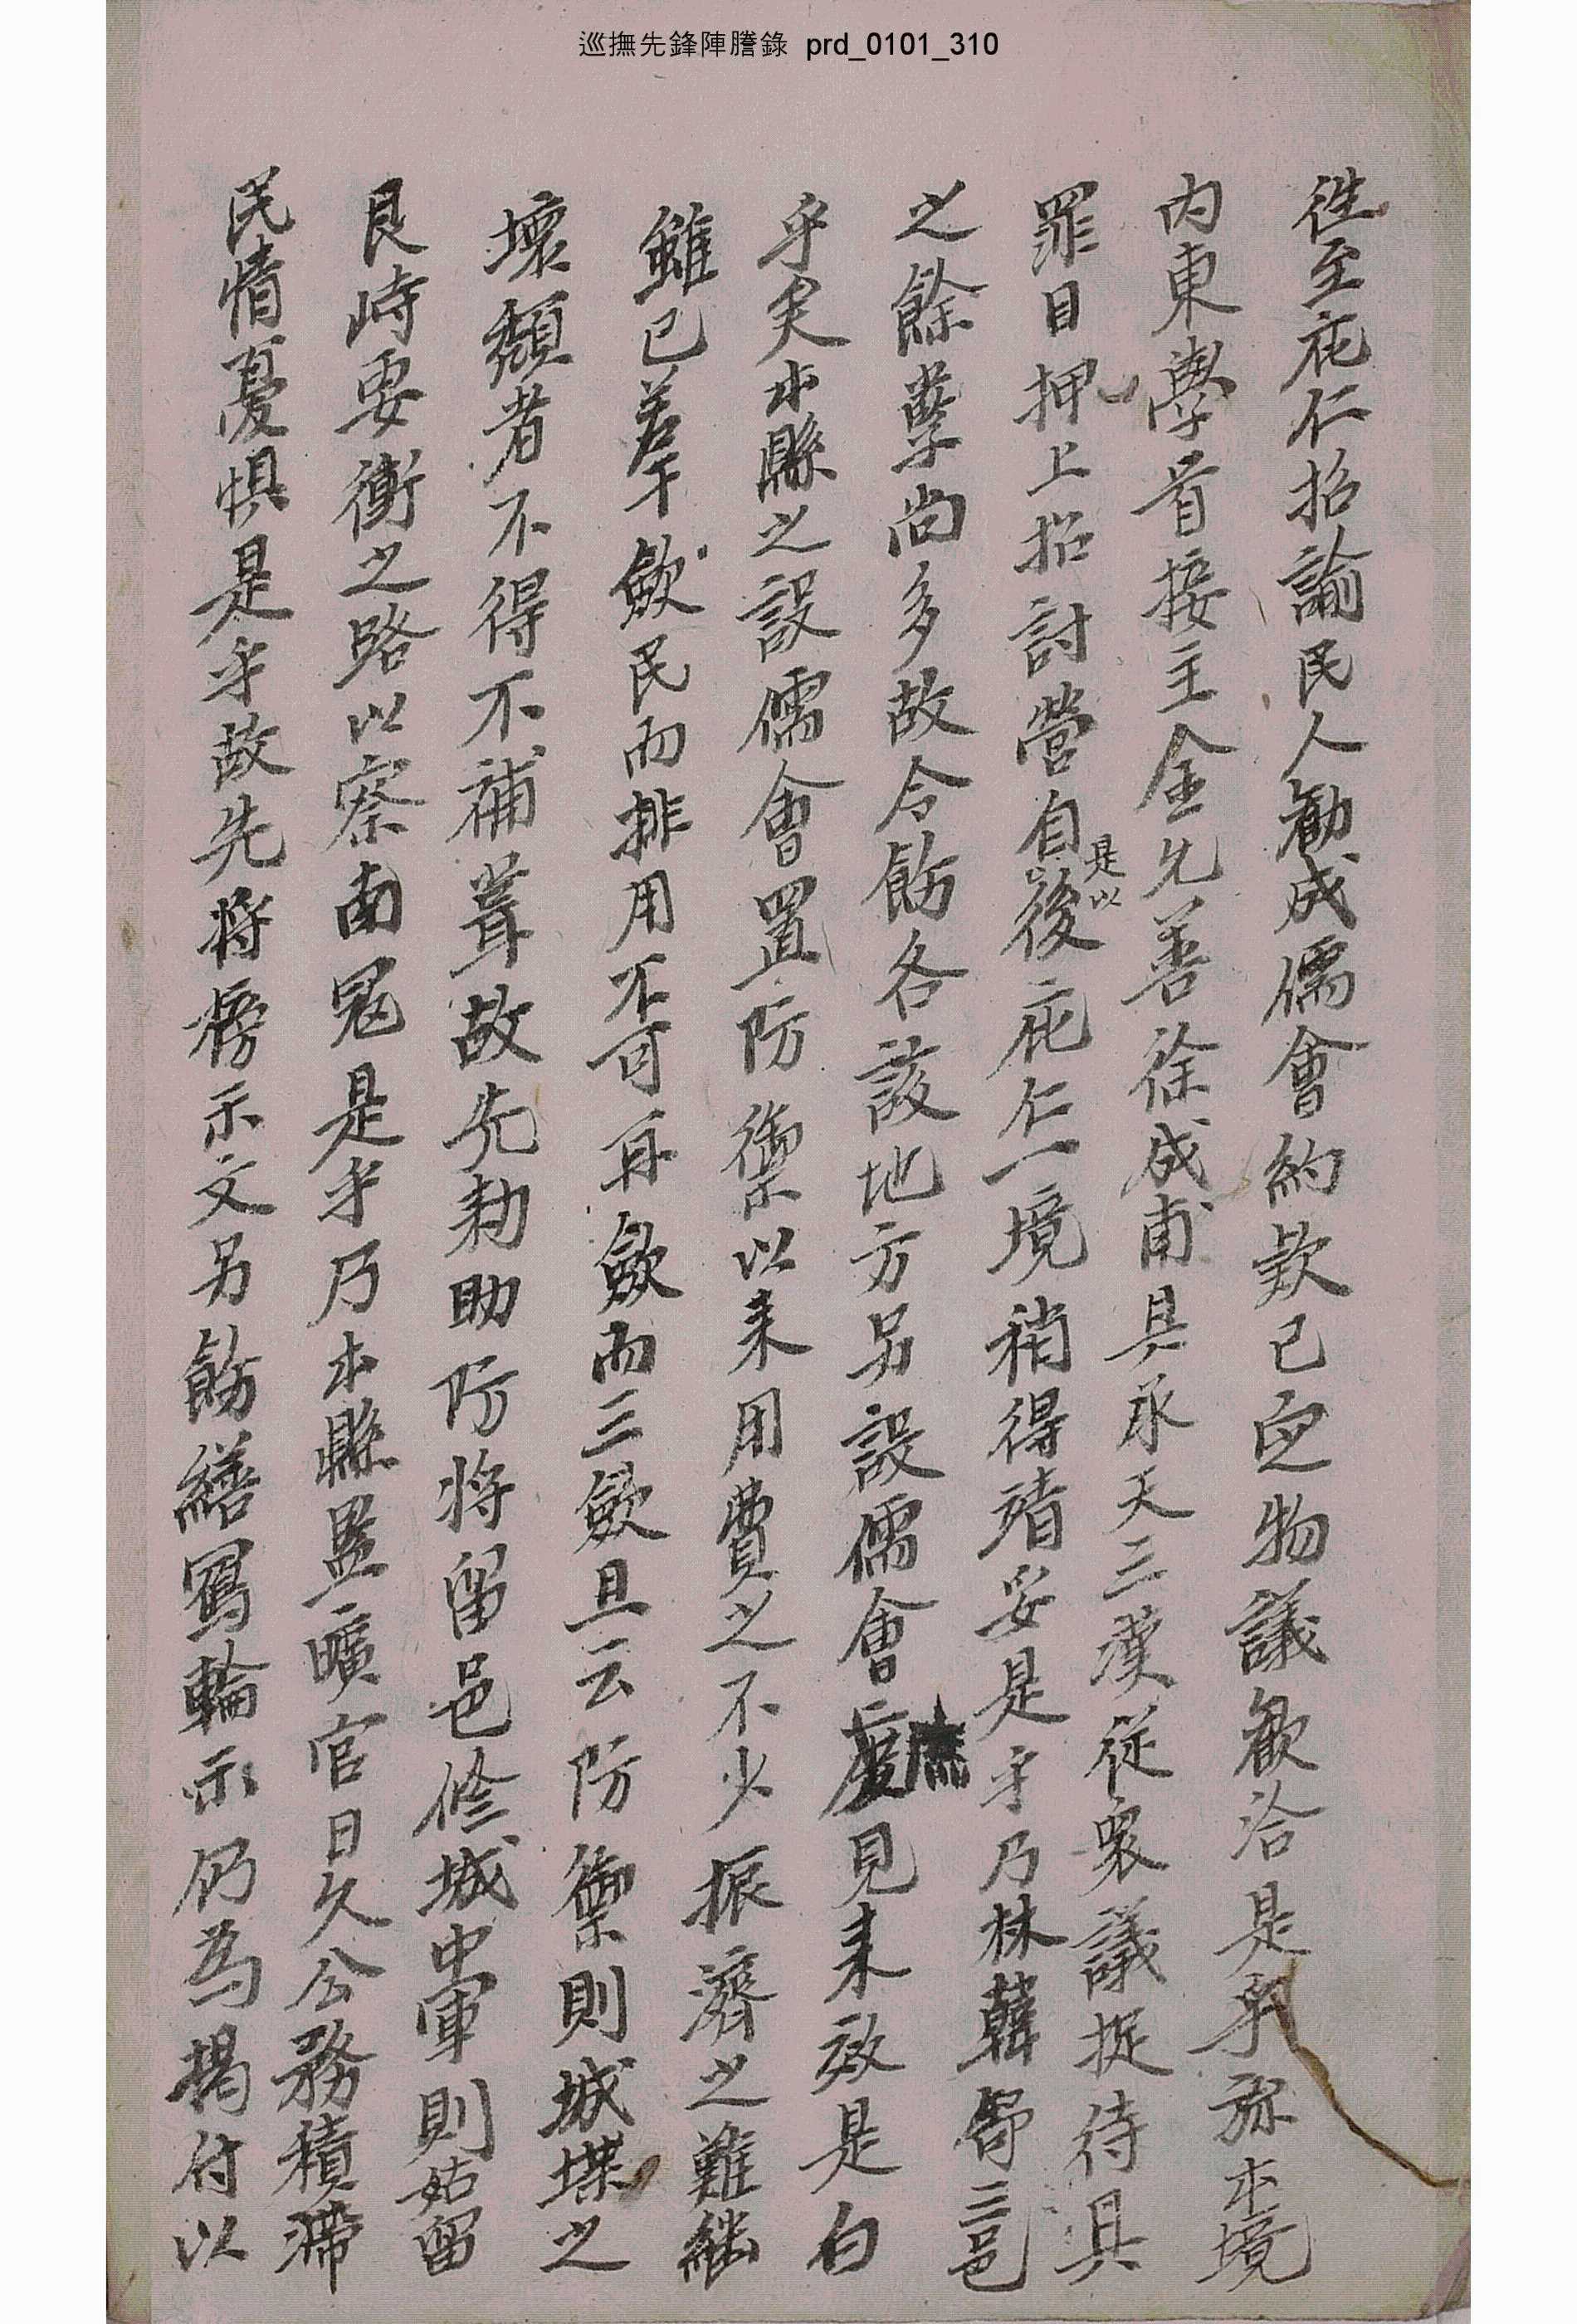 巡撫先鋒陣謄錄 prd_0101_310
徃至庇仁招諭民人勸成儒會約款已無物議歡洽是乎旀本境
內東學首接主金允善徐成甫具永天三漢從衆議捉待具
罪目押上招討營自是以後庇仁一境稍得靖妥是乎乃林韓舒三邑
之餘孽尚多故令飭各該地方另設儒會庶見來效是白
乎矣本縣之設儒會置防禦以來用費之不少振濟之難継
雖已若干斂民而排用不可再斂而三斂且云防禦則城堞之
壞頹者不得不補葺故先勅助防將留邑修城中軍則姑留
艮峙要衝之路以察南冦是乎乃本縣監曠官日久公務積滯
民情憂惧是乎故先將榜示文另飭繕寫輪示仍為揭付以